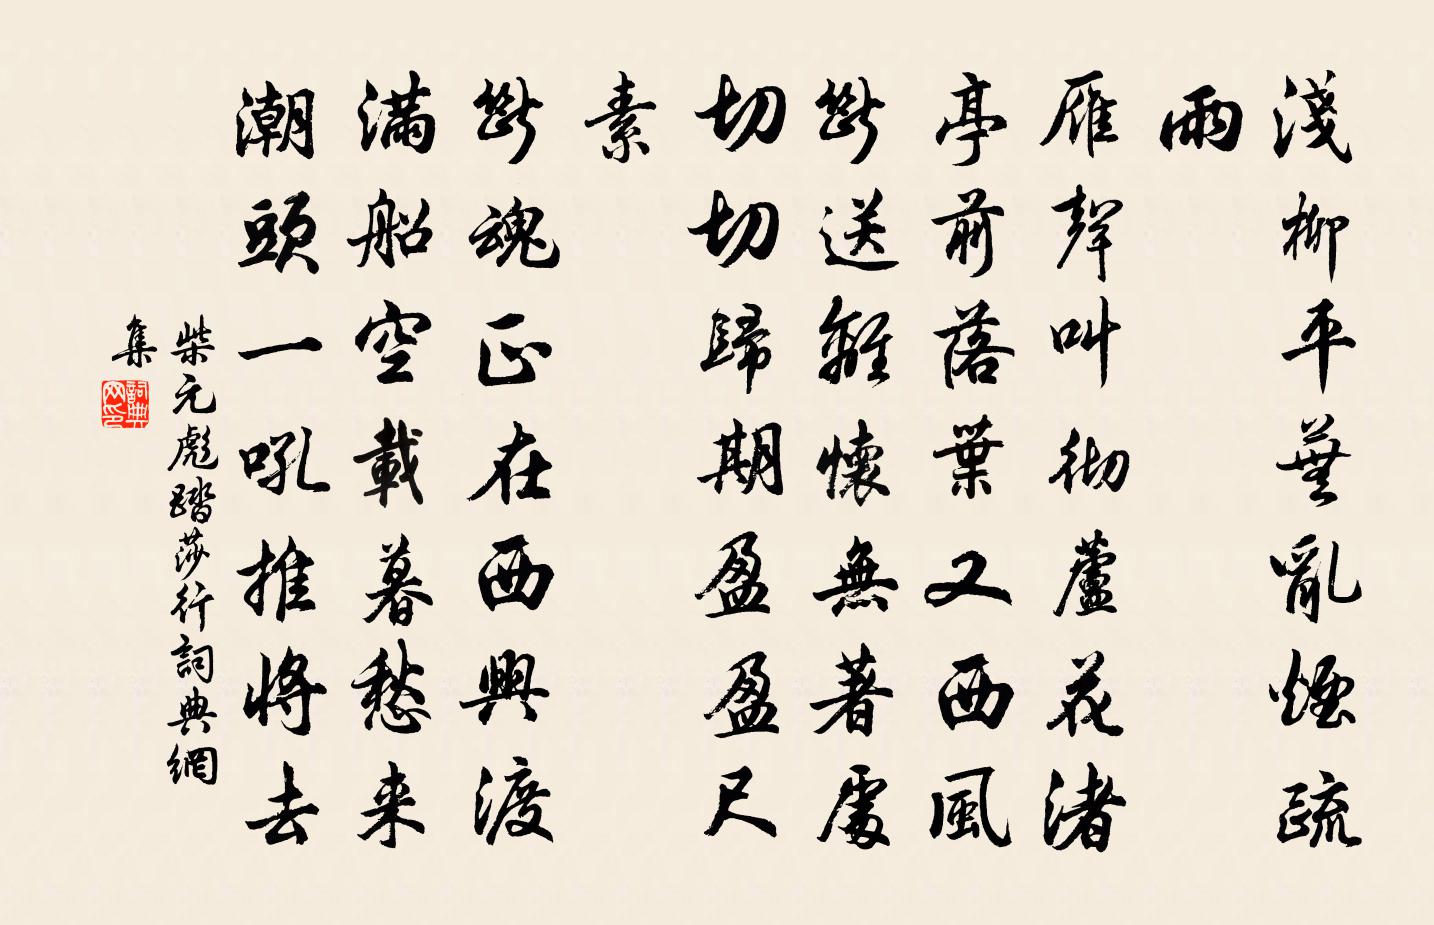 淺柳平蕪亂煙疏
雨
雁聲叫徹蘆花渚
亭前落葉又西風
斷送離懷無著處
切切歸期盈盈尺
素
斷魂正在西興渡
滿船空載暮愁來
潮頭一吼推將去
柴元彪踏莎行詞典網
集
詞典
网印